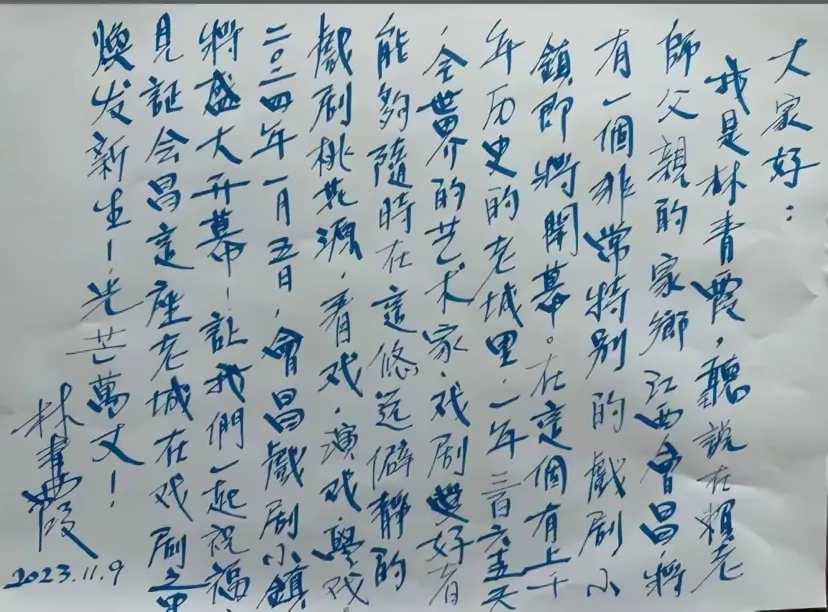 大家好：
我是林青霞，聽說在賴老
師父親的家鄉江西會昌，將
有一個非常特别的戲剧小
鎮即將開幕。在這個有上千
年历史的老城里，一年三百六十五天
全世界的艺术家、戏剧爱好者
能夠隨時在這悠远僻静的
戲剧桃花源，看戏，演戏，學戏
二〇二四年一月五日，會昌戲剧小鎮
将盛大开幕！讓我們一起祝福，
見証会昌這座老城在戏剧
煥发新生！光芒萬丈！
林青霞
2023.11.9